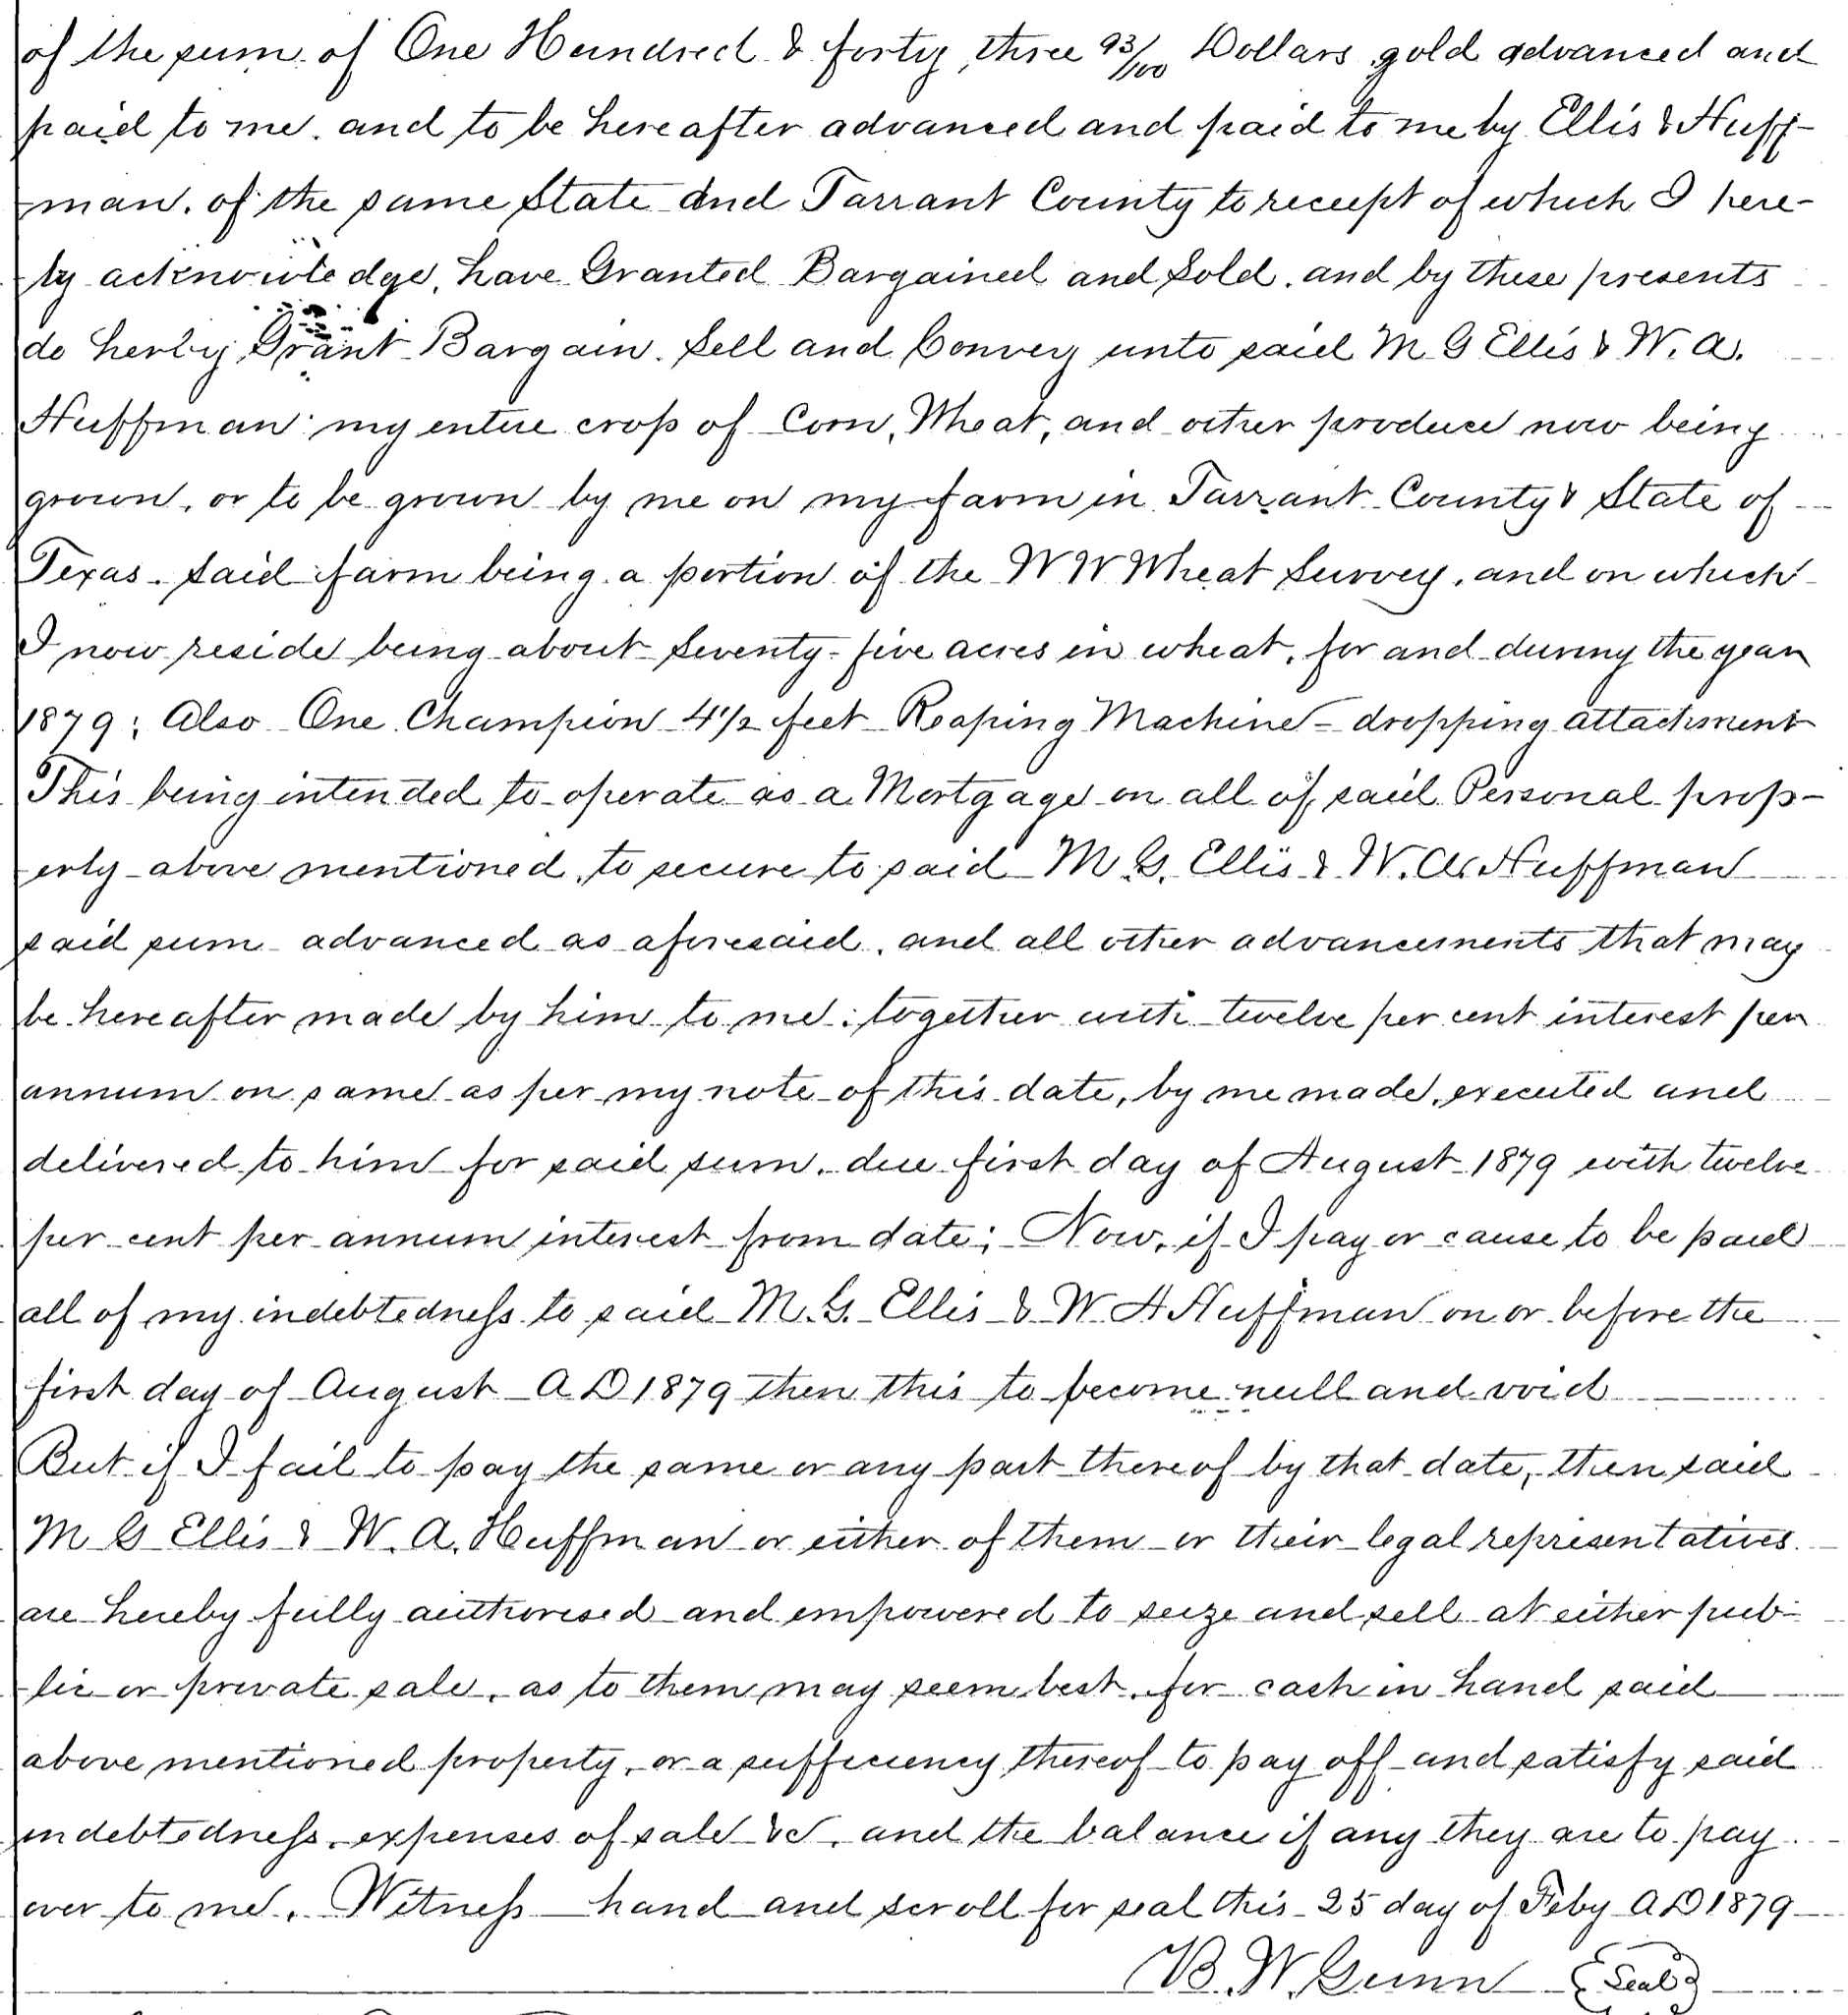 of the sum of One Hundred & forty three 93/100 Dollars gold advanced and
paid to me. and to be hereafter advanced and paid to me by Ellis & Huff-
man. of the same State and Tarrant County to receipt of which I here-
by acknowledge, have Granted Bargained and Sold. and by these presents
do herby Grant Bargain. Sell and Convey unto said M G Ellis & W. A.
Huffman my entire crop of Corn, Wheat, and other produce now being
grown, or to be grown by me on my farm in Tarrant County & State of
Texas. Said farm being a portion of the W W Wheat Survey, and on which
I now reside being about Seventy-five acres in wheat, for and during the year
1879; Also One Champion 4 1/2 feet Reaping Machine - dropping attachment
This being intended to operate as a Mortgage on all of said Personal prop-
erty above mentioned, to secure to said M. G. Ellis & W. A. Huffman
said sum advanced as aforesaid, and all other advancements that may
be hereafter made by him to me; together with twelve per cent interest per
annum on same as per my note of this date, by me made, executed and
delivered to him for said sum, due first day of August 1879 with twelve
per cent per annum interest from date; Now, if I pay or cause to be paid
all of my indebtedness to said M. G. Ellis & W A Huffman on or before the
first day of August A D 1879 then this to become null and void
But if I fail to pay the same or any part thereof by that date, then said
M G Ellis & W. A. Huffman or either of them or their legal representatives
are hereby fully authorised and empowered to seize and sell at either pub-
lic or private sale, as to them may seem best, for cash in hand said
above mentioned property, or a sufficiency thereof to pay off and satisfy said
indebtedness, expenses of sale &c, and the balance if any they are to pay
over to me. Witness hand and scroll for seal this 25 day of Feby A D 1879
B. W. Gunn (Seal)